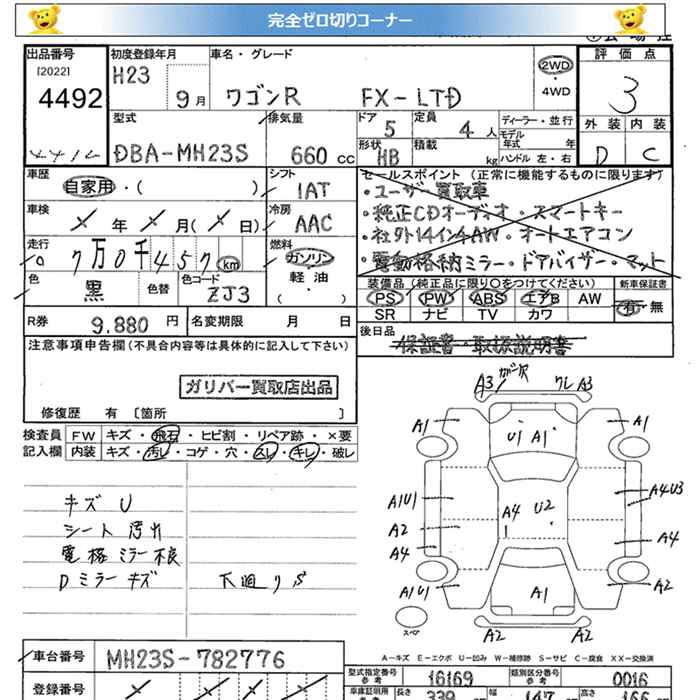 完全ゼロ切りコーナー
出品番号 初度登録年月 車名・グレード 評価点
[2022] H23 2WD
4492 9月 ワゴンR FX-LTD ・4WD 3
型式 排気量 ドア 5 定員 4人 ディーラー・並行 外装 内装
モデル年式 年
DBA-MH23S 660cc 形状 HB 積載 kg ハンドル 左・右 D C
車歴 シフト セールスポイント (正常に機能するものに限ります)
自家用・( ) IAT ・ユーザー買取車
車検 冷房 ・純正CDオーディオ・スマートキー
× 年 × 月( × 日) AAC ・社外14インチAW・オートエアコン
走行 燃料 ・電動格納ミラー・ドアバイザー・マット
7万0千457km ガソリン
軽油
・( )
色 色替 色コード 装備品 (純正品に限り○をつけてください) 新車保証書
黒 ZJ3 PS PW ABS エアB AW 有・無
SR ナビ TV カワ
R券 9,880円 名変期限 月 日 後日品
保証書・取扱説明書
注意事項申告欄(不具合内容等は具体的に記入して下さい)
ガリバー買取店出品
修復歴 有 [箇所 ]
検査員 FW キズ・飛石・ヒビ割・リペア跡・×要
記入欄 内装 キズ・汚レ・コゲ・穴・スレ・キレ・破レ
キズ U
シート 汚れ
電格ミラー不良
Dミラー キズ 下廻りS
A3 ガリ欠 クレ A3
A1 U1 A1 A1
A1U1 A4 U2 A4U3
A2 A4
A4
A1U1 A1 A2
スペア A2 A2
A-キズ E-エクボ U-凹み W-補修跡 S-サビ C-腐食 XX-交換済
車台番号 MH23S-782776 型式指定番号 参考 16169 類別区分番号 参考 0016
登録番号 長さ 339 幅 147 高さ 166